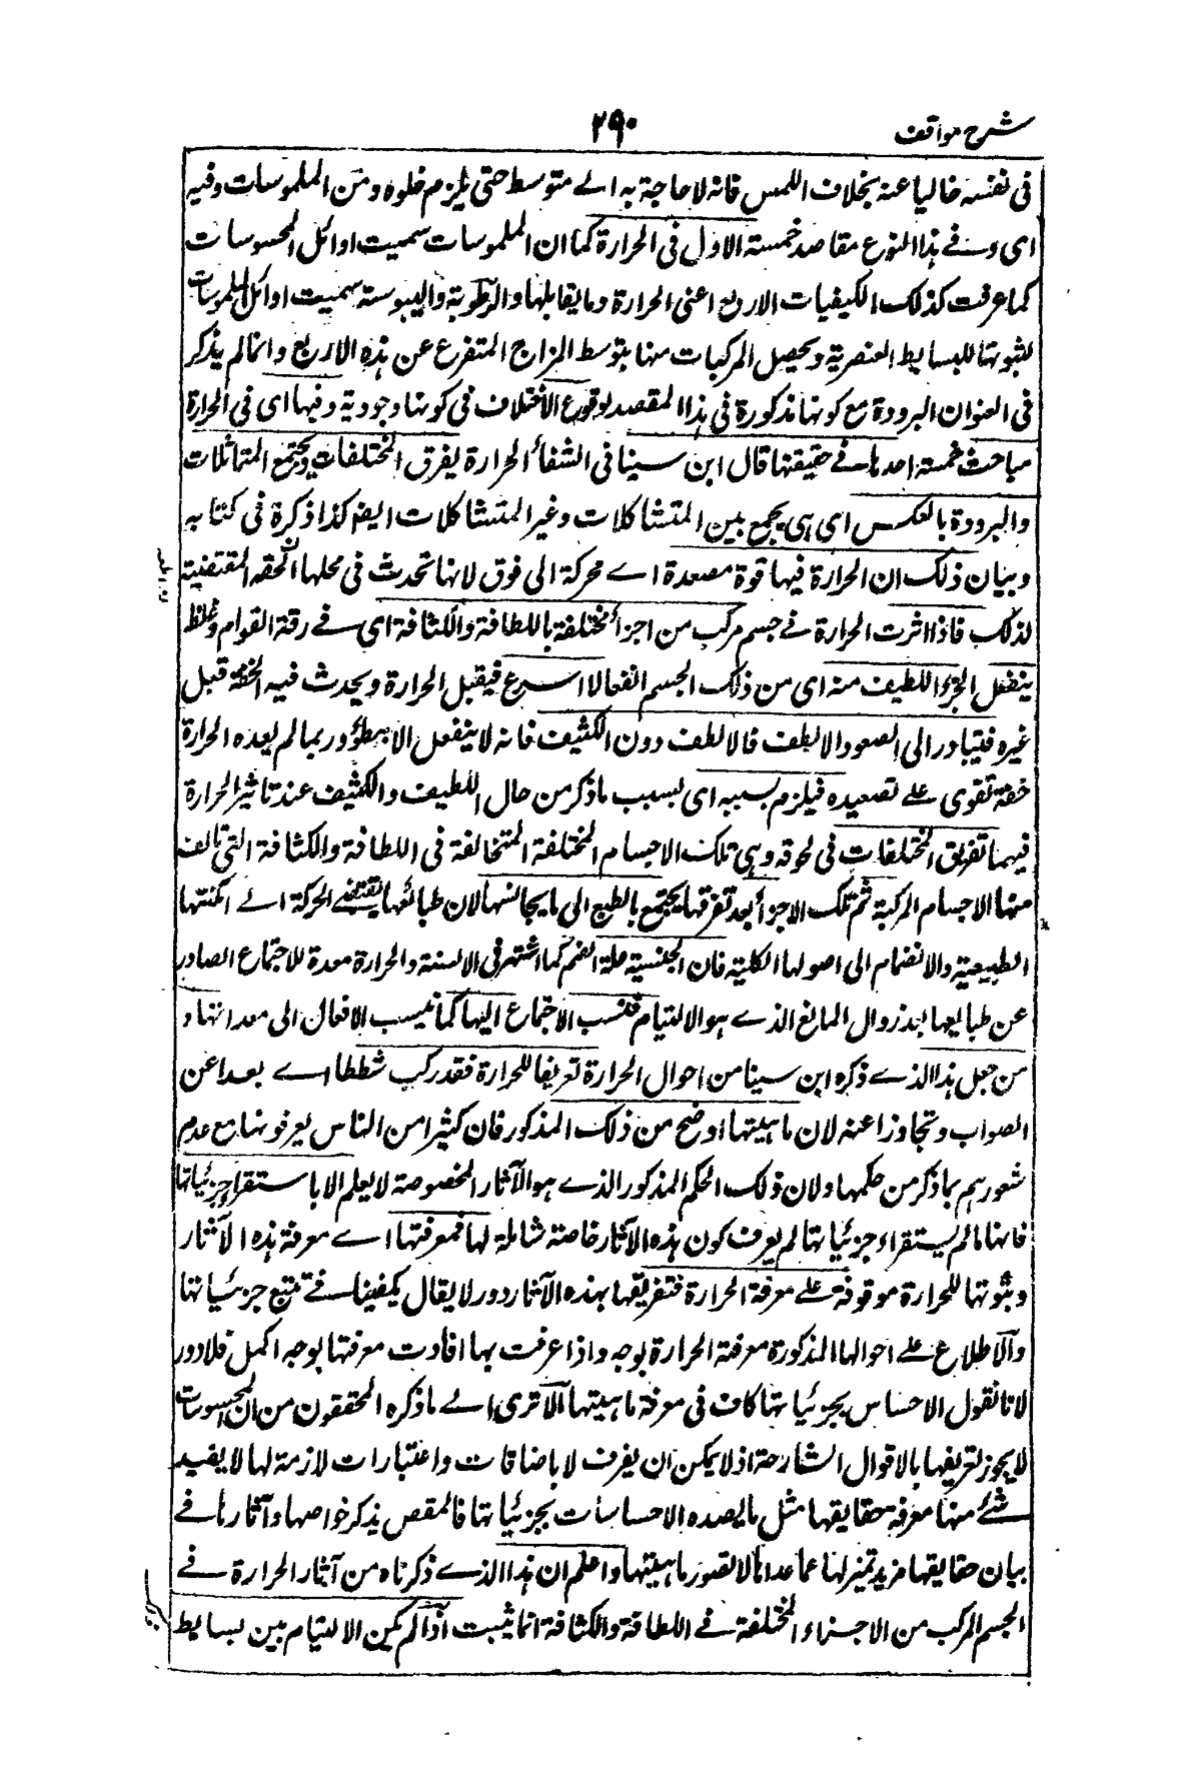 شرح مواقف
٢٩٠
فى نفسه خاليا عنه بخلاف اللمس فانه لا حاجة به الے متوسط حتى يلزم خلوه ومن الملموسات وفيه
اى وفے هذا النوع مقاصد خمسة الاول فى الحرارة كما ان الملموسات سميت اوائل المحسوسات
كما عرفت كذلك الكيفيات الاربع اعنى الحرارة وما يقابلها والرطوبة واليبوسة سميت اوائل الملموسات
لثبوتها للبسايط العنصرية وتحصيل المركبات منها بتوسط المزاج المتفرع عن هذه الاربع وانما لم يذكر
فى العنوان البرودة مع كونها مذكورة فى هذا المقصد لوقوع الاختلاف فى كونها وجودية وفيها اى فى الحرارة
مباحث خمسة احدها فے حقيقتها قال ابن سينا فى الشفاء الحرارة يفرق المختلفات ويجتمع المتماثلات
والبرودة بالعكس اى هى يجمع بين المتشاكلات وغير المتشاكلات ايضا كذا ذكره فى كتابه
وبيان ذلك ان الحرارة فيها قوة مصعدة اے محركة الى فوق لانها تحدث فى محلها الخفة المقتضية
لذلك فاذا اثرت الحرارة فے جسم مركب من اجزاء مختلفة باللطافة والكثافة اى فے رقة القوام وغلظ
ينفعل الجزء اللطيف منه اى من ذلك الجسم انفعالا اسرع فيقبل الحرارة ويحدث فيه الخفة قبل
غيره فتبادر الى الصعود الالطف فالالطف دون الكثيف فانه لا ينفعل الا ببطؤ وربما لم يعده الحرارة
خفة تقوى علے تصعيده فيلزم بسببه اى بسبب ما ذكر من حال اللطيف والكثيف عند تاثير الحرارة
فيهما تفريق المختلفات فى لحوقه وهى تلك الاجسام المختلفة المتخالفة فى اللطافة والكثافة التى تالف
منها الاجسام المركبة ثم تلك الاجزاء بعد تفرقها يجتمع بالطبع الى ما يجانسها لان طبائعها يقتضے الحركة الے امكنتها
الطبيعية والانضمام الى اصولها الكلية فان الجنسية علة الضم كما اشتهر فى الالسنة والحرارة معدة للاجتماع الصادر
عن طبايعها بعد زوال المانع الذے هو الالتيام فنسب الاجتماع اليها كما ينسب الافعال الى معداتها و
من جعل هذا الذے ذكره ابن سينا من احوال الحرارة تعريفا للحرارة فقد ركب شططا اے بعدا عن
الصواب وتجاوزا عنه لان ماهيتها اوضح من ذلك المذكور فان كثيرا من الناس يعرفونها مع عدم
شعورهم بما ذكر من حكمها ولان ذلك الحكم المذكور الذے هو الآثار المخصوصة لا يعلم الا باستقراء جزئياتها
فانها ما لم يستقراء جزئياتها لم يعرف كون هذه الآثار خاصة شاملة لها فمعرفتها اے معرفة هذه الآثار
وثبوتها للحرارة موقوفة علے معرفة الحرارة فتعريفها بهذه الآثار دور لا يقال يكفينا فے تتبع جزئياتها
والاطلاع علے احوالها المذكورة معرفة الحرارة بوجه واذا عرفت بها افادت معرفتها بوجه اكمل فلا دور
لانا نقول الاحساس بجزئياتها كاف فى معرفة ماهيتها الا ترى الے ما ذكره المحققون من ان المحسوسات
لا يجوز تعريفها بالاقوال الشارحة اذ لا يمكن ان يعرف لا باضافات واعتبارات لازمة لها لا يفيد
شئے منها معرفة حقايقها مثل ما يفيده الاحساسات بجزئياتها فالمقص بذكر خواصها وآثارها فے
بيان حقايقها مزيد تميز لها عما عداها لا تصور ماهيتها واعلم ان هذا الذے ذكرناه من آثار الحرارة فے
الجسم المركب من الاجزاء المختلفة فے اللطافة والكثافة انما يثبت اذا لم يكن الالتيام بين بسايط